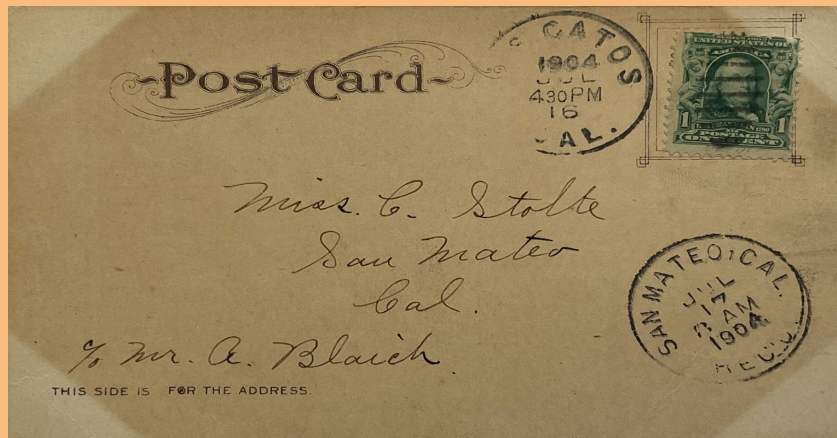 Post Card
GATOS
1904
JUL
4 30 PM
16
CAL.
UNITED STATES OF
AMERICA
1 1
POSTAGE
ONE CENT
Miss. C. Stolte
San Mateo
Cal.
SAN MATEO, CAL.
JUL
17
8 AM
1904
REC'D.
℅ Mr. A. Blaich.
THIS SIDE IS FOR THE ADDRESS.